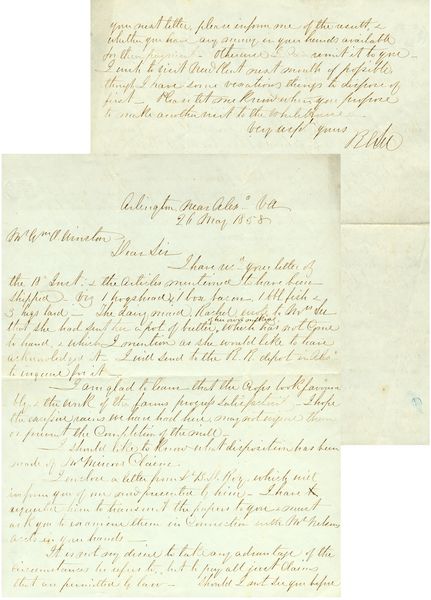 Arlington near Alexa Va
26 May 1858
Mr Wm O Winston
Dear Sir
I have recd your letter of
the 18 Inst: & the articles mentioned to have been
shipped. Viz 1 hogshead, 1 box bacon, 1 bbl fish &
3 kegs lard - The dairy maid, Rachel, Mrs Lee
that she had sent her a pot of butter, which has not come
to hand, & which I mention as she would like to have
acknowledged it - I will send to the R. R. depot
to inquire for it -
I am glad to learn that the crops look favour
bly, & the work of the farms progress satisfactorily - I hope
the excessive rains we have had here, may not injure them
or prevent the completion of the mill -
I should like to know what disposition has been
made of Mr claim.
I enclose a letter from which will
inform you of one now presented by him - I have
requested him to transmit the papers to you & must
ask you to examine them in connection with Mr
accts in your hands -
It is not my desire to take any advantage of the
circumstances he refers to, but to pay all just claims
that are permitted by law - Should I not see you before
your next letter, please inform me of the result, &
whether you have any money in your hands available
for the otherwise I remit it to you -
I wish to visit next month if possible
though I have some vexatious things to dispose of
first - Please let me know when you propose
to make another visit to the White House -
Very respy yours
R E Lee